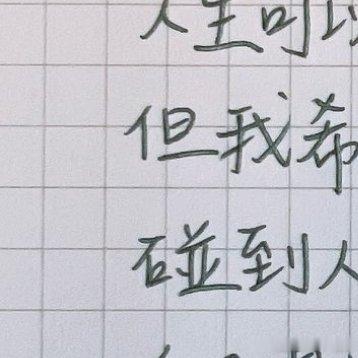 人生可以
但我希
碰到人